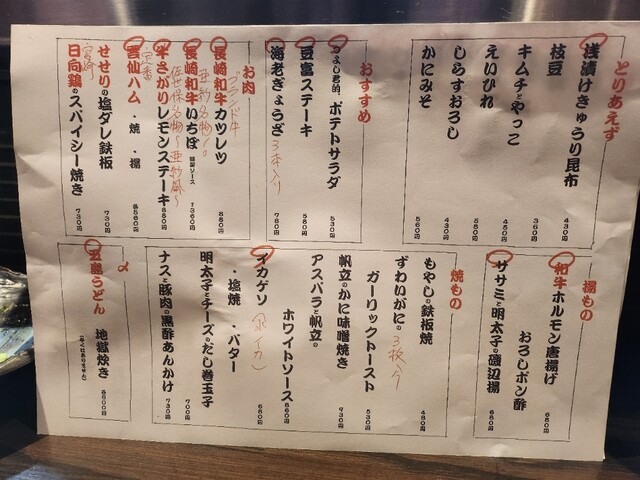 とりあえず
浅漬けきゅうり昆布 430円
枝豆 360円
キムチとやっこ 450円
えいひれ 580円
しらすおろし 430円
かにみそ 560円
おすすめ
つよし君的、ポテトサラダ 530円
豆富ステーキ 580円
海老ぎょうざ 3本入り 780円
お肉
ブランド牛
長崎和牛カツレツ 880円
長崎和牛いちぼ 1360円
佐世保名物
牛さがりレモンステーキ 880円
定番
雲仙ハム ・焼 ・揚 各560円
せせりの塩ダレ鉄板 730円
宮崎
日向鶏のスパイシー焼き 730円
揚もの
和牛ホルモン唐揚げ
おろしポン酢 680円
ササミと明太子の磯辺揚 680円
焼もの
もやしの鉄板焼 480円
ずわいがにの 3枚入り
ガーリックトースト 530円
帆立のかに味噌焼き 930円
アスパラと帆立の
ホワイトソース 860円
イカゲソ
・塩焼 ・バター 680円
明太子とチーズのだし巻玉子 700円
ナスと豚肉の黒酢あんかけ 730円
〆
五島うどん
地獄炊き 各800円